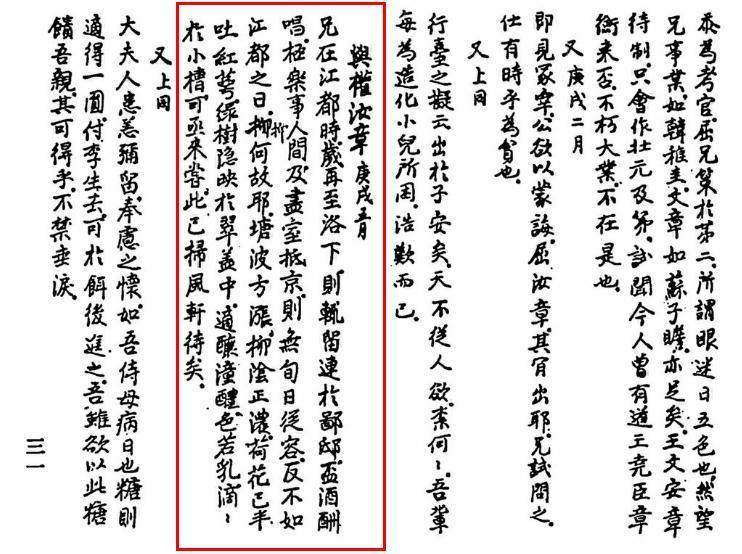 忝為考官.屈兄策於第二.所謂眼迷日五色也.然望
兄事業.如韓稚圭.文章如蘇子瞻.亦足矣.王文安章
待制.只會作壯元及第.試聞今人曾有道王堯臣章
衡来否.不朽大業.不在是也.
又 庚戌二月
即見冢宰.公欲以蒙誨.屈汝章.其肯出耶.兄試問之.
仕有時乎為貧也.
又 上同
行臺之擬云出於子安矣.天不從人欲.柰何〻.吾軰
每為造化小兒所困.浩歎而已.
與權汝章 庚戌五月
兄在江都時.歲再至洛下.則輒留連於鄙邸.盃酒酬
唱.極樂事人間.及盡室抵京.則無旬日從容.反不如
江都之日.抑何故耶.塘波方漲.柳陰正濃.荷花已半
抑
吐紅萼.綠樹隐映於翠盖中.適釀潼醴.色若乳滴〻
於小槽.可亟来嘗.此已掃風軒待矣.
又 上同
大夫人患恙彌留.奉慮之懷.如吾侍母病日也.糖則
適得一圓.付李生去.可於餌後進之.吾雖欲以此糖
饋吾親.其可得乎.不禁垂淚.
三一